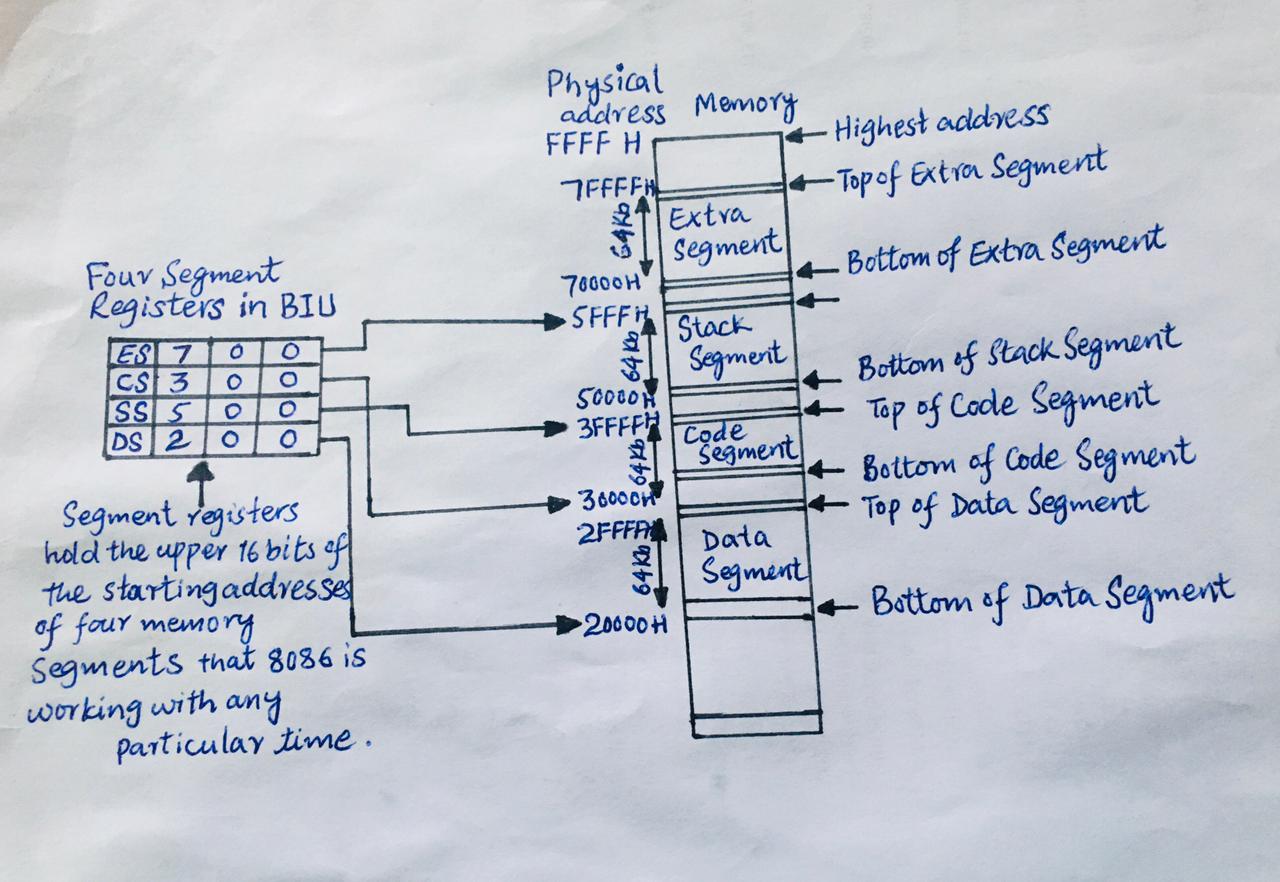 Physical
address
FFFF H
Memory
Highest address
7FFFFH
Top of Extra Segment
64Kb
Extra
Segment
Bottom of Extra Segment
70000H
Four Segment
Registers in BIU
5FFFH
ES 7 0 0
CS 3 0 0
SS 5 0 0
DS 2 0 0
64Kb
Stack
Segment
Bottom of Stack Segment
50000H
Top of Code Segment
3FFFFH
64Kb
Code
Segment
Bottom of Code Segment
30000H
Top of Data Segment
2FFFFH
64Kb
Data
Segment
Bottom of Data Segment
20000H
Segment registers
hold the upper 16 bits of
the starting addresses
of four memory
Segments that 8086 is
working with any
particular time.